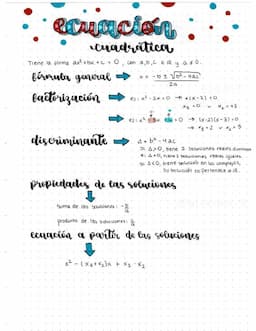 ecuación
cuadrática
Tiene la forma ax² + bx + c = 0, con a, b, c ∈ ℝ y a ≠ 0.
fórmula general → x = -b ± √b² - 4ac / 2a
factorización → ej: x² - 2x = 0 → x(x-2) = 0
x₁ = 0 ∨ x₂ = +2
→ (x-2)(x-3) = 0
→ x₁ = 2 ∨ x₂ = 3
discriminante → Δ = b² - 4ac
Si Δ > 0, tiene 2 soluciones reales distintas
Si Δ = 0, tiene 2 soluciones reales iguales
Si Δ < 0, tiene solución en los complejos,
propiedades de las soluciones
suma de las soluciones: -b/a
producto de las soluciones: c/a
ecuación a partir de las soluciones
x² - (x₁ + x₂)x + x₁ · x₂